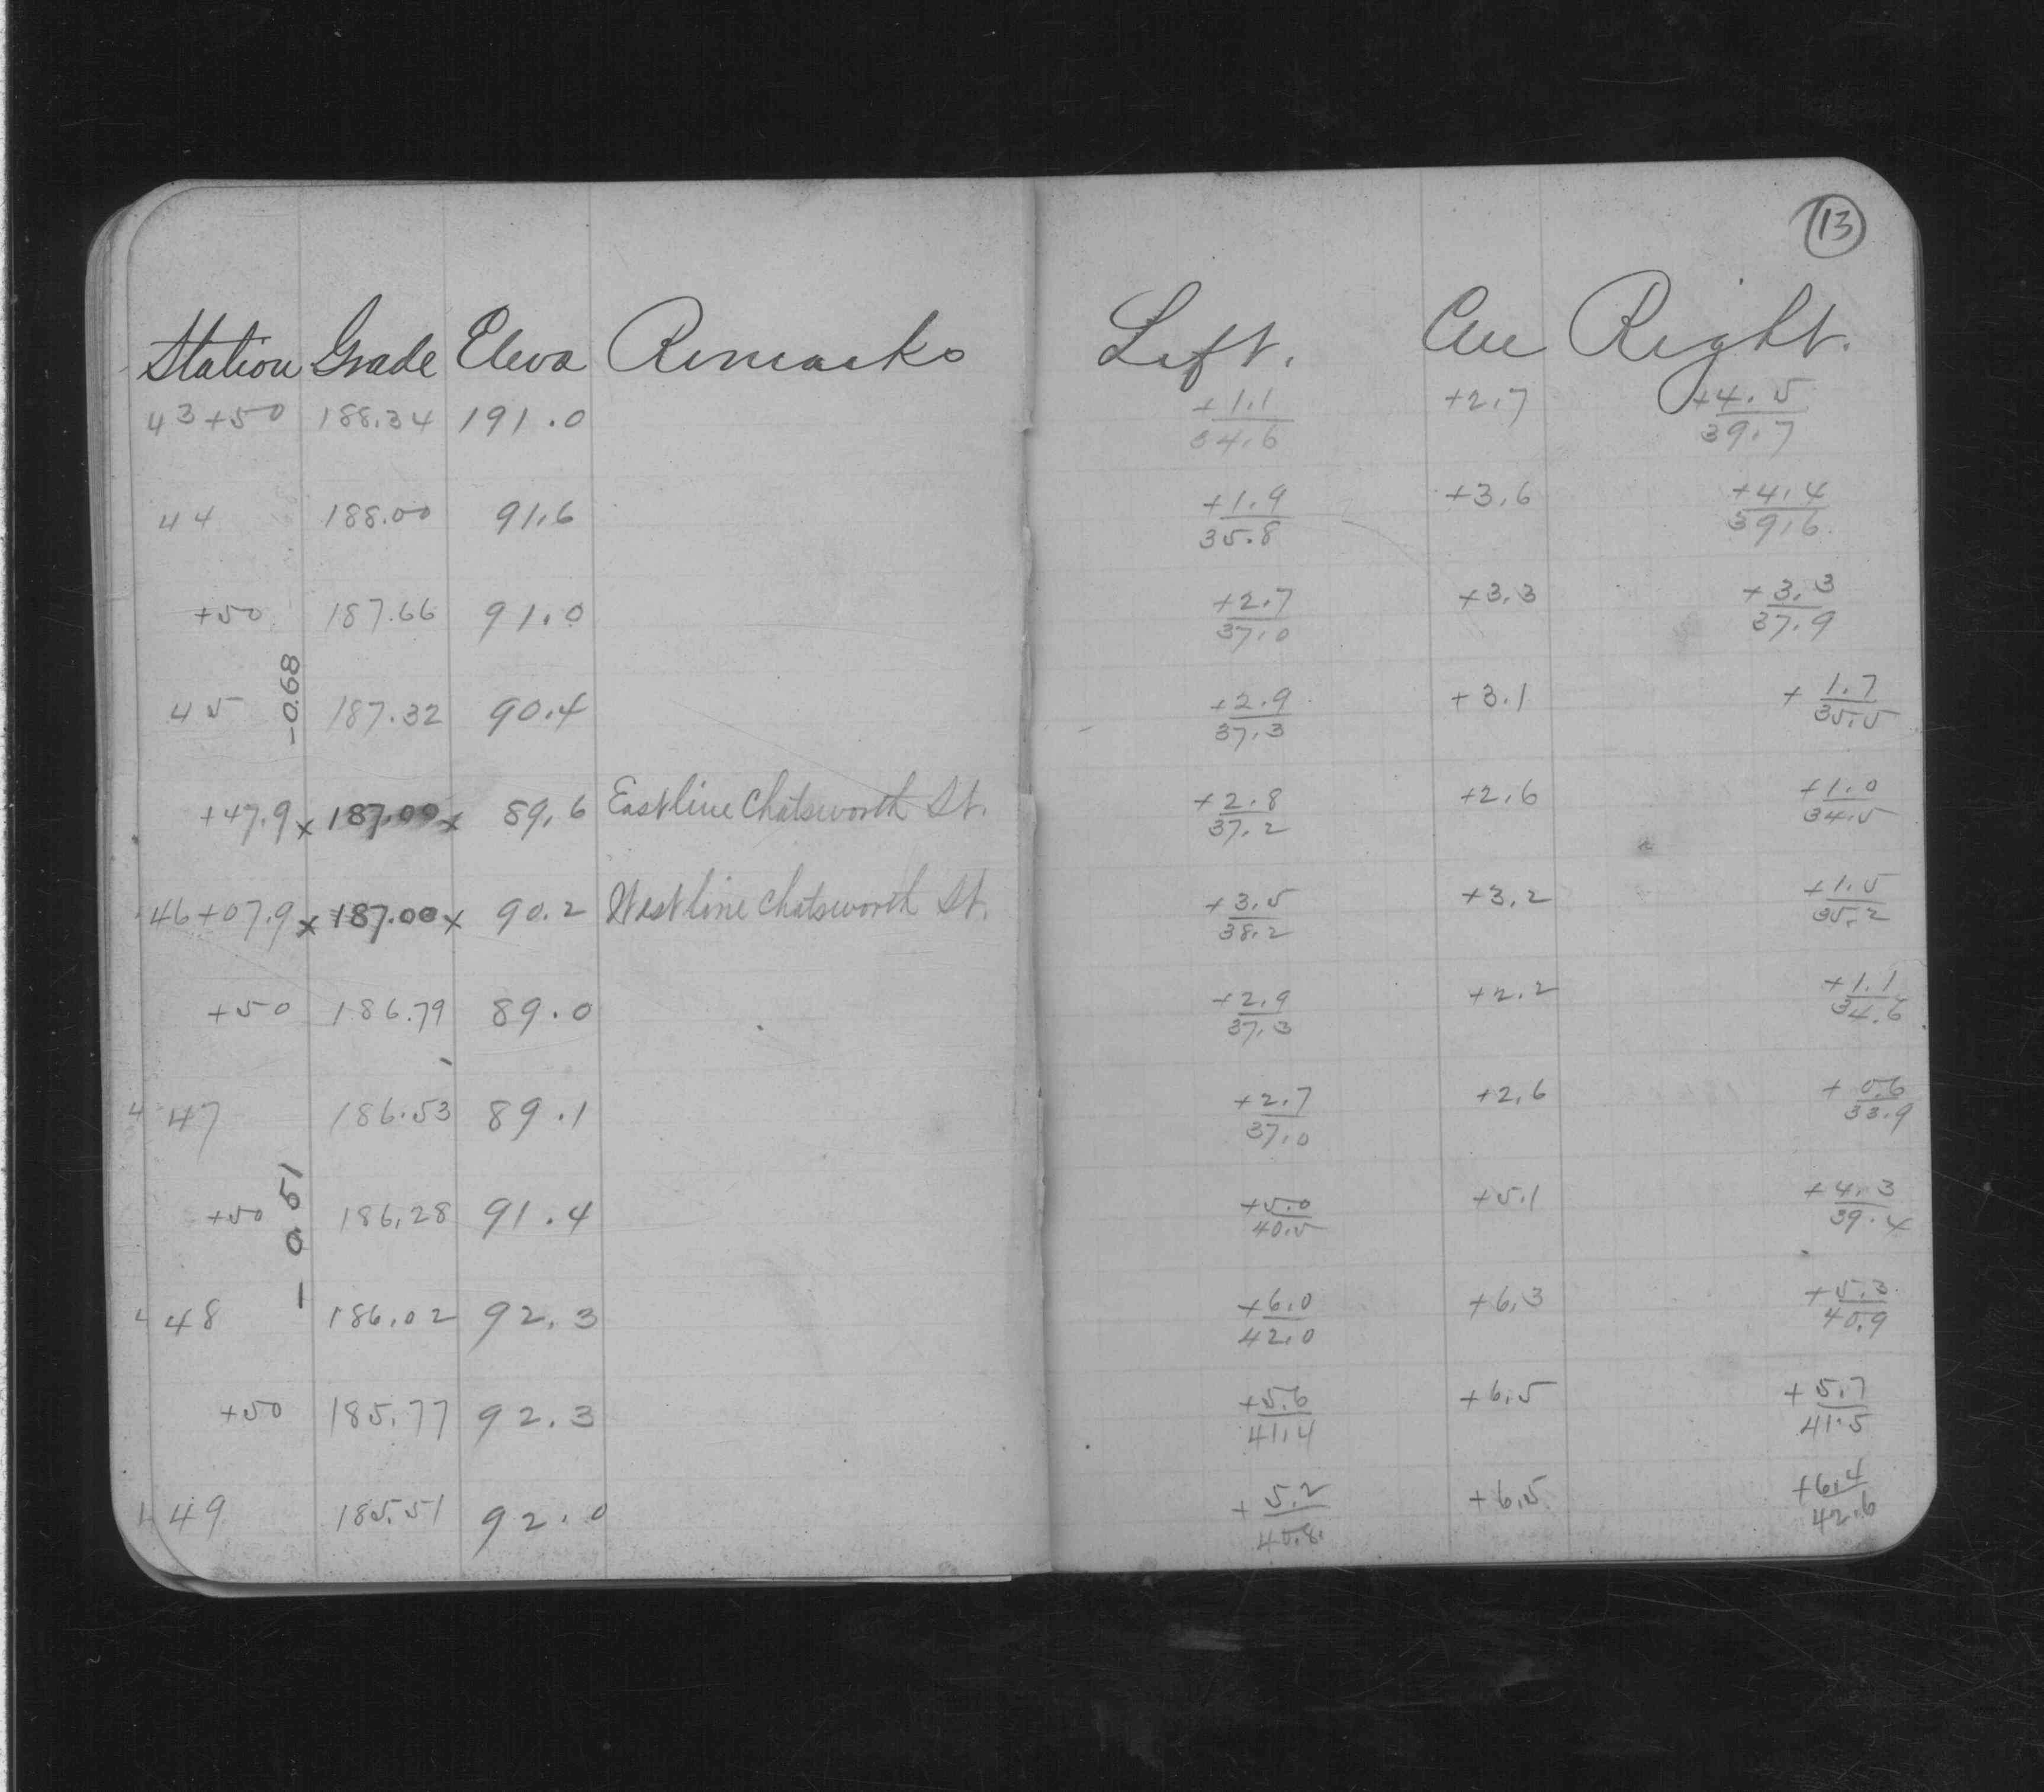 13
Station Grade Eleva Remarks Left. Cen Right.
43+50 188.34 191.0 +1.1 +2.7 +4.5
34.6 39.7
44 188.00 91.6 +1.9 +3.6 +4.4
35.8 39.6
+50 187.66 91.0 +2.7 +3.3 +3.3
37.0 37.9
-0.68
45 187.32 90.4 +2.9 +3.1 +1.7
37.3 35.5
+47.9 x 187.00 x 89.6 East line Chatsworth St. +2.8 +2.6 +1.0
37.2 34.5
46+07.9 x 187.00 x 90.2 West line Chatsworth St. +3.5 +3.2 +1.5
38.2 35.2
+50 186.79 89.0 +2.9 +2.2 +1.1
37.3 34.6
47 186.53 89.1 +2.7 +2.6 +0.6
37.0 33.9
-0.51
+50 186.28 91.4 +5.0 +5.1 +4.3
40.5 39.4
48 186.02 92.3 +6.0 +6.3 +5.3
42.0 40.9
+50 185.77 92.3 +5.6 +6.5 +5.7
41.4 41.5
49 185.51 92.0 +5.2 +6.5 +6.4
40.8 42.6